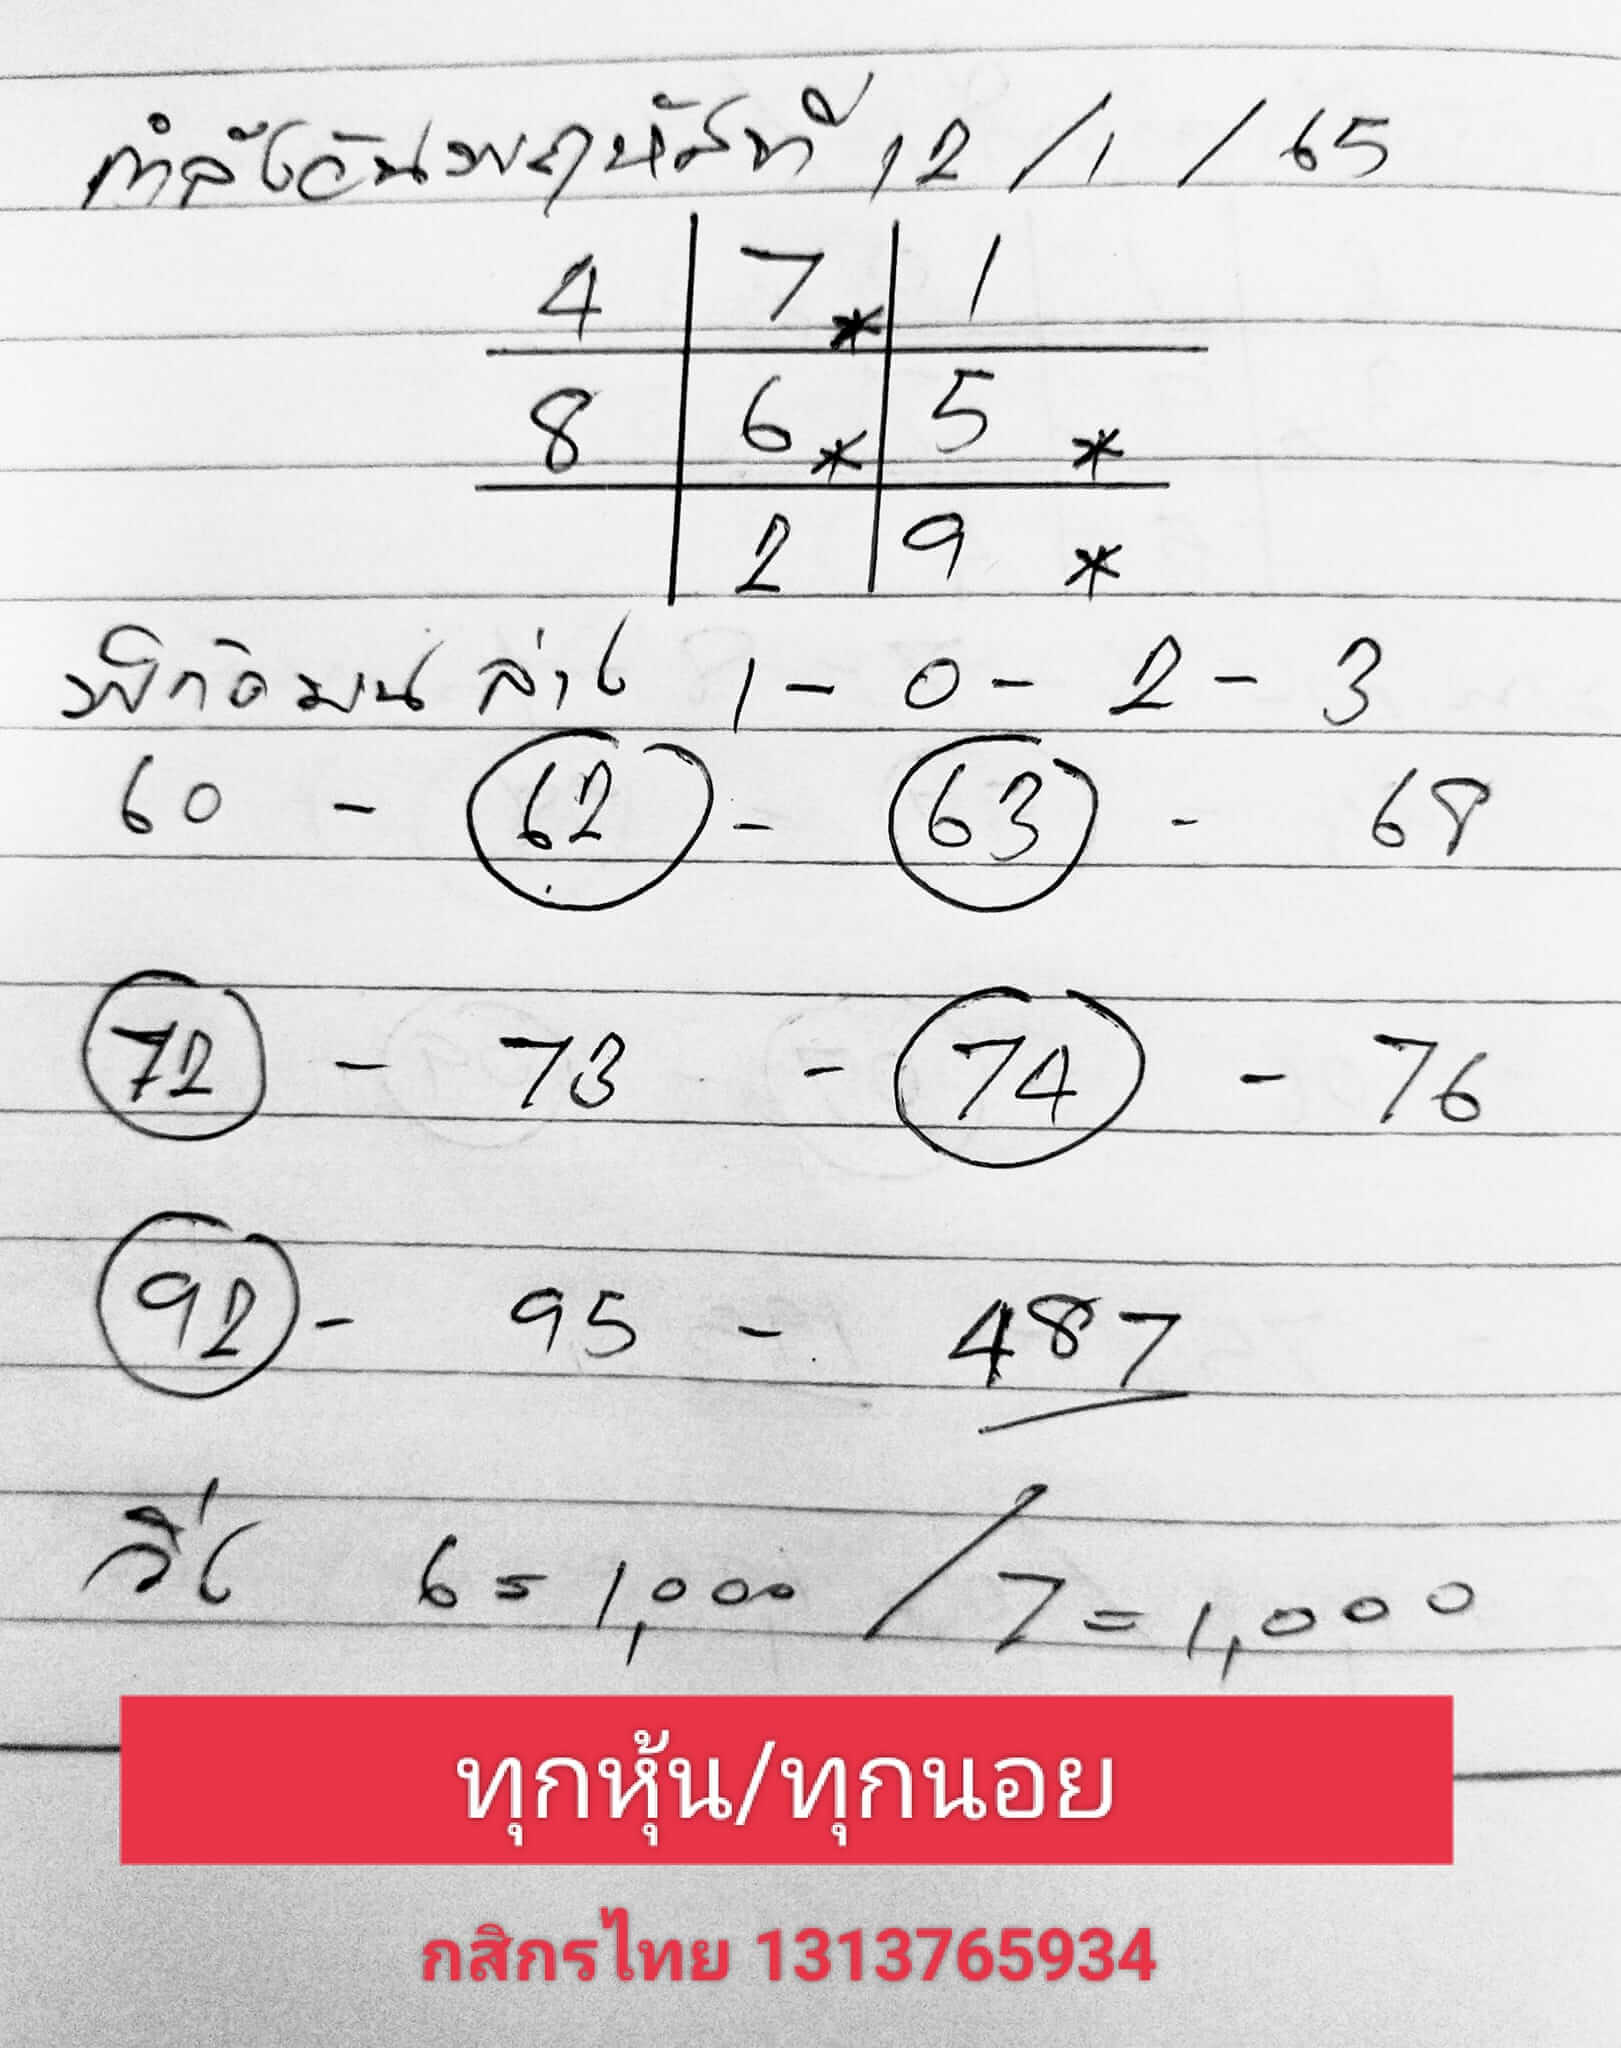 กำลังวันพฤหัสที่ 12/1/65
4 | 7* | 1
8 | 6* | 5 *
2 | 9 *
พิกัดบน ล่าง 1 - 0 - 2 - 3
60 - 62 - 63 - 68
72 - 73 - 74 - 76
92 - 95 - 487
วิ่ง 6=1,000 / 7=1,000
ทุกหุ้น/ทุกนอย
กสิกรไทย 1313765934